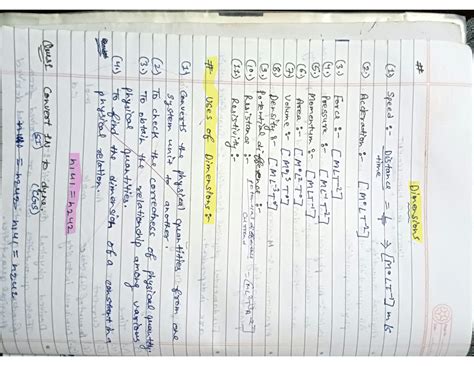 # Dimensions
(1) Speed :- Distance / time = L/T ⇒ [M⁰LT⁻¹] m/s
(2) Acceleration :- [M⁰LT⁻²]
(3.) Force :- [MLT⁻²]
(4.) Pressure :- [ML⁻¹T⁻²]
(5.) Momentum :- [MLT⁻¹]
(6.) Area :- [M⁰L²T⁰]
(7.) Volume :- [M⁰L³T⁰]
(8) Density :- [ML⁻³T⁰]
(9.) Potential difference :-
(10.) Resistance :- potential difference / current
(11) Resistivity :-
# Uses of Dimensions :-
(1) Converts the physical quantities from one
system unit to another.
(2) To check the correctness of physical quantity.
(3.) To obtain the relationship among various
physical quantities.
(4.) To find the dimension of a constant in a
physical relation.
n1u1 = n2u2
Ques. Convert 1N to dyne.
(SI) (CGS)
n1u1 = n2u2 n1u1 = n2u2